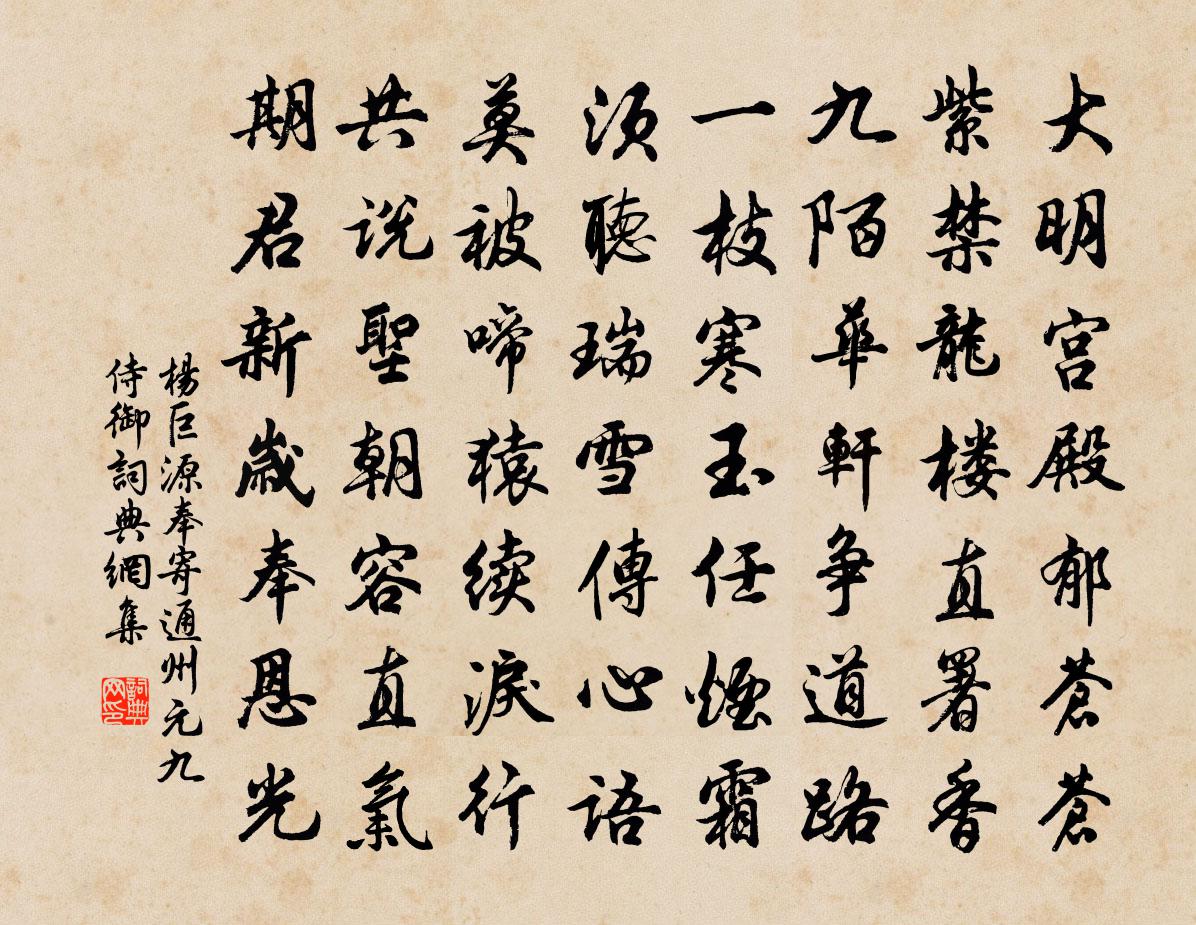 大明宫殿郁苍苍
紫禁龍楼直署香
九陌華軒争道路
一枝寒玉任煙霜
須聽瑞雪傳心語
莫被啼猿续淚行
共说聖朝容直氣
期君新歲奉恩光
楊巨源奉寄通州元九
侍御詞典網集
詞典
网印